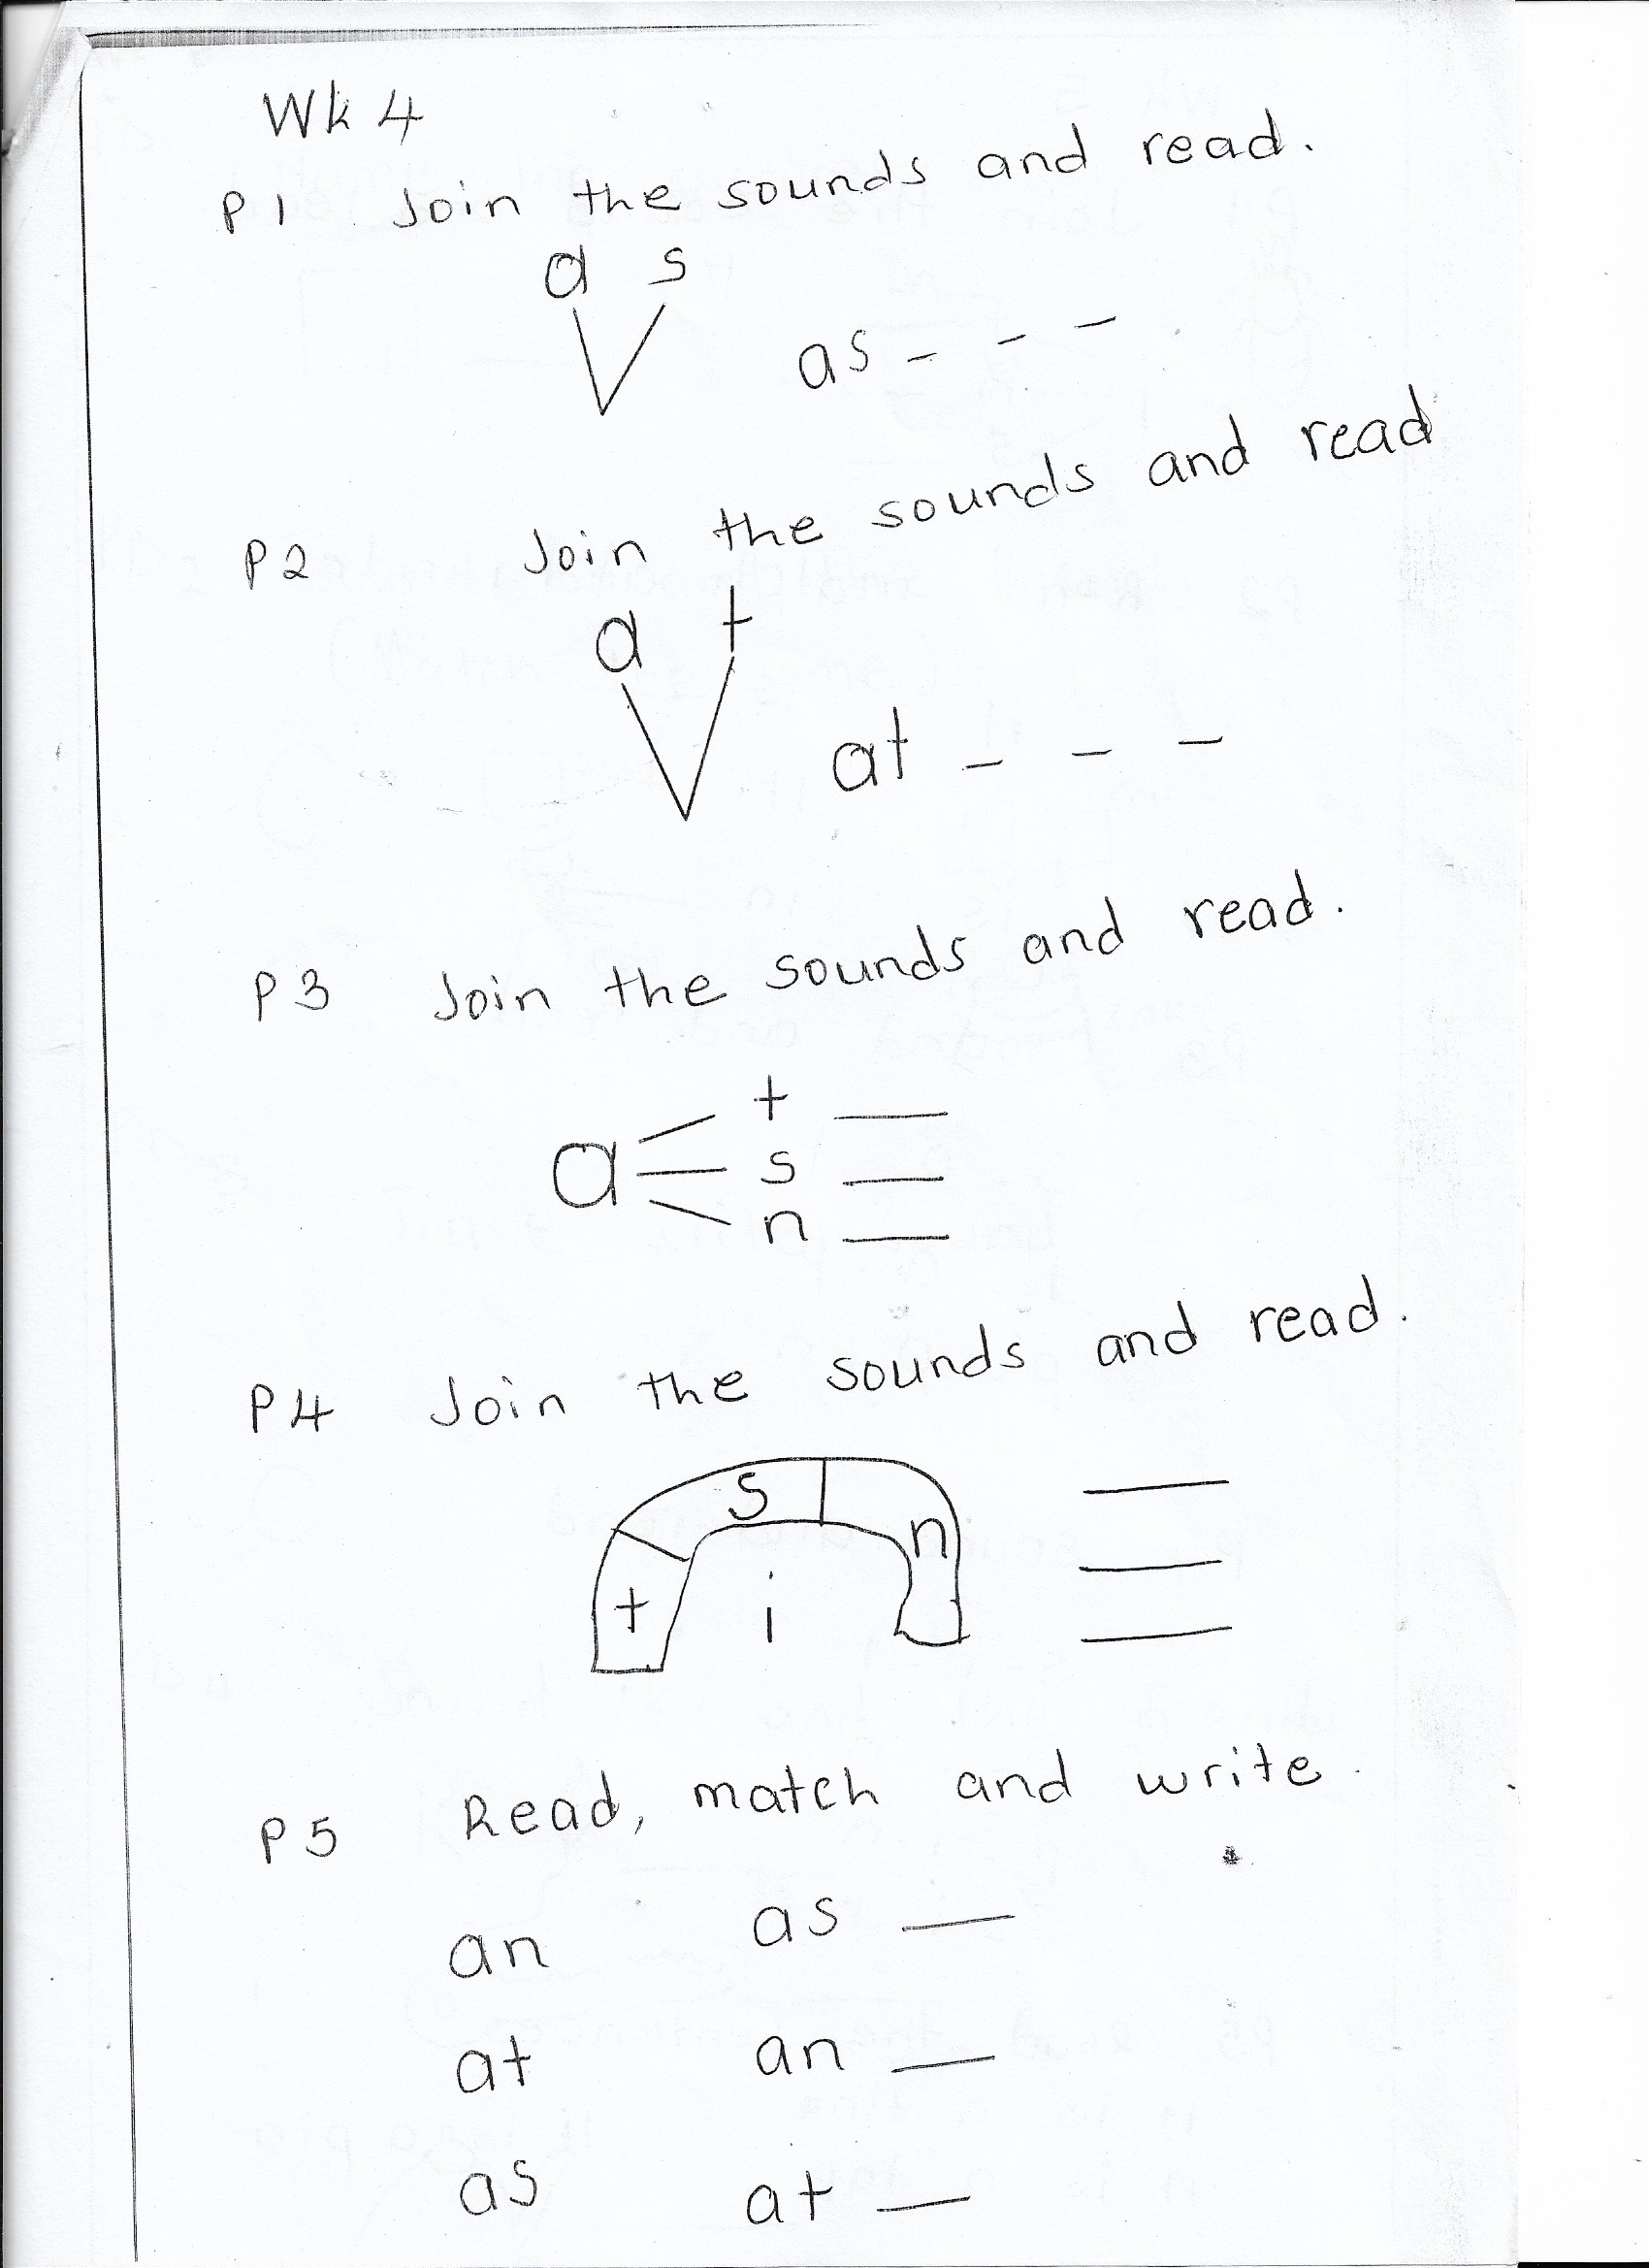 Wk 4
P1 Join the sounds and read.
a s
as - - -
P2 Join the sounds and read
a t
at - - -
P3 Join the sounds and read.
t ___
a s ___
n ___
P4 Join the sounds and read.
s ___
n ___
t i ___
P5 Read, match and write.
an as ___
at an ___
as at ___